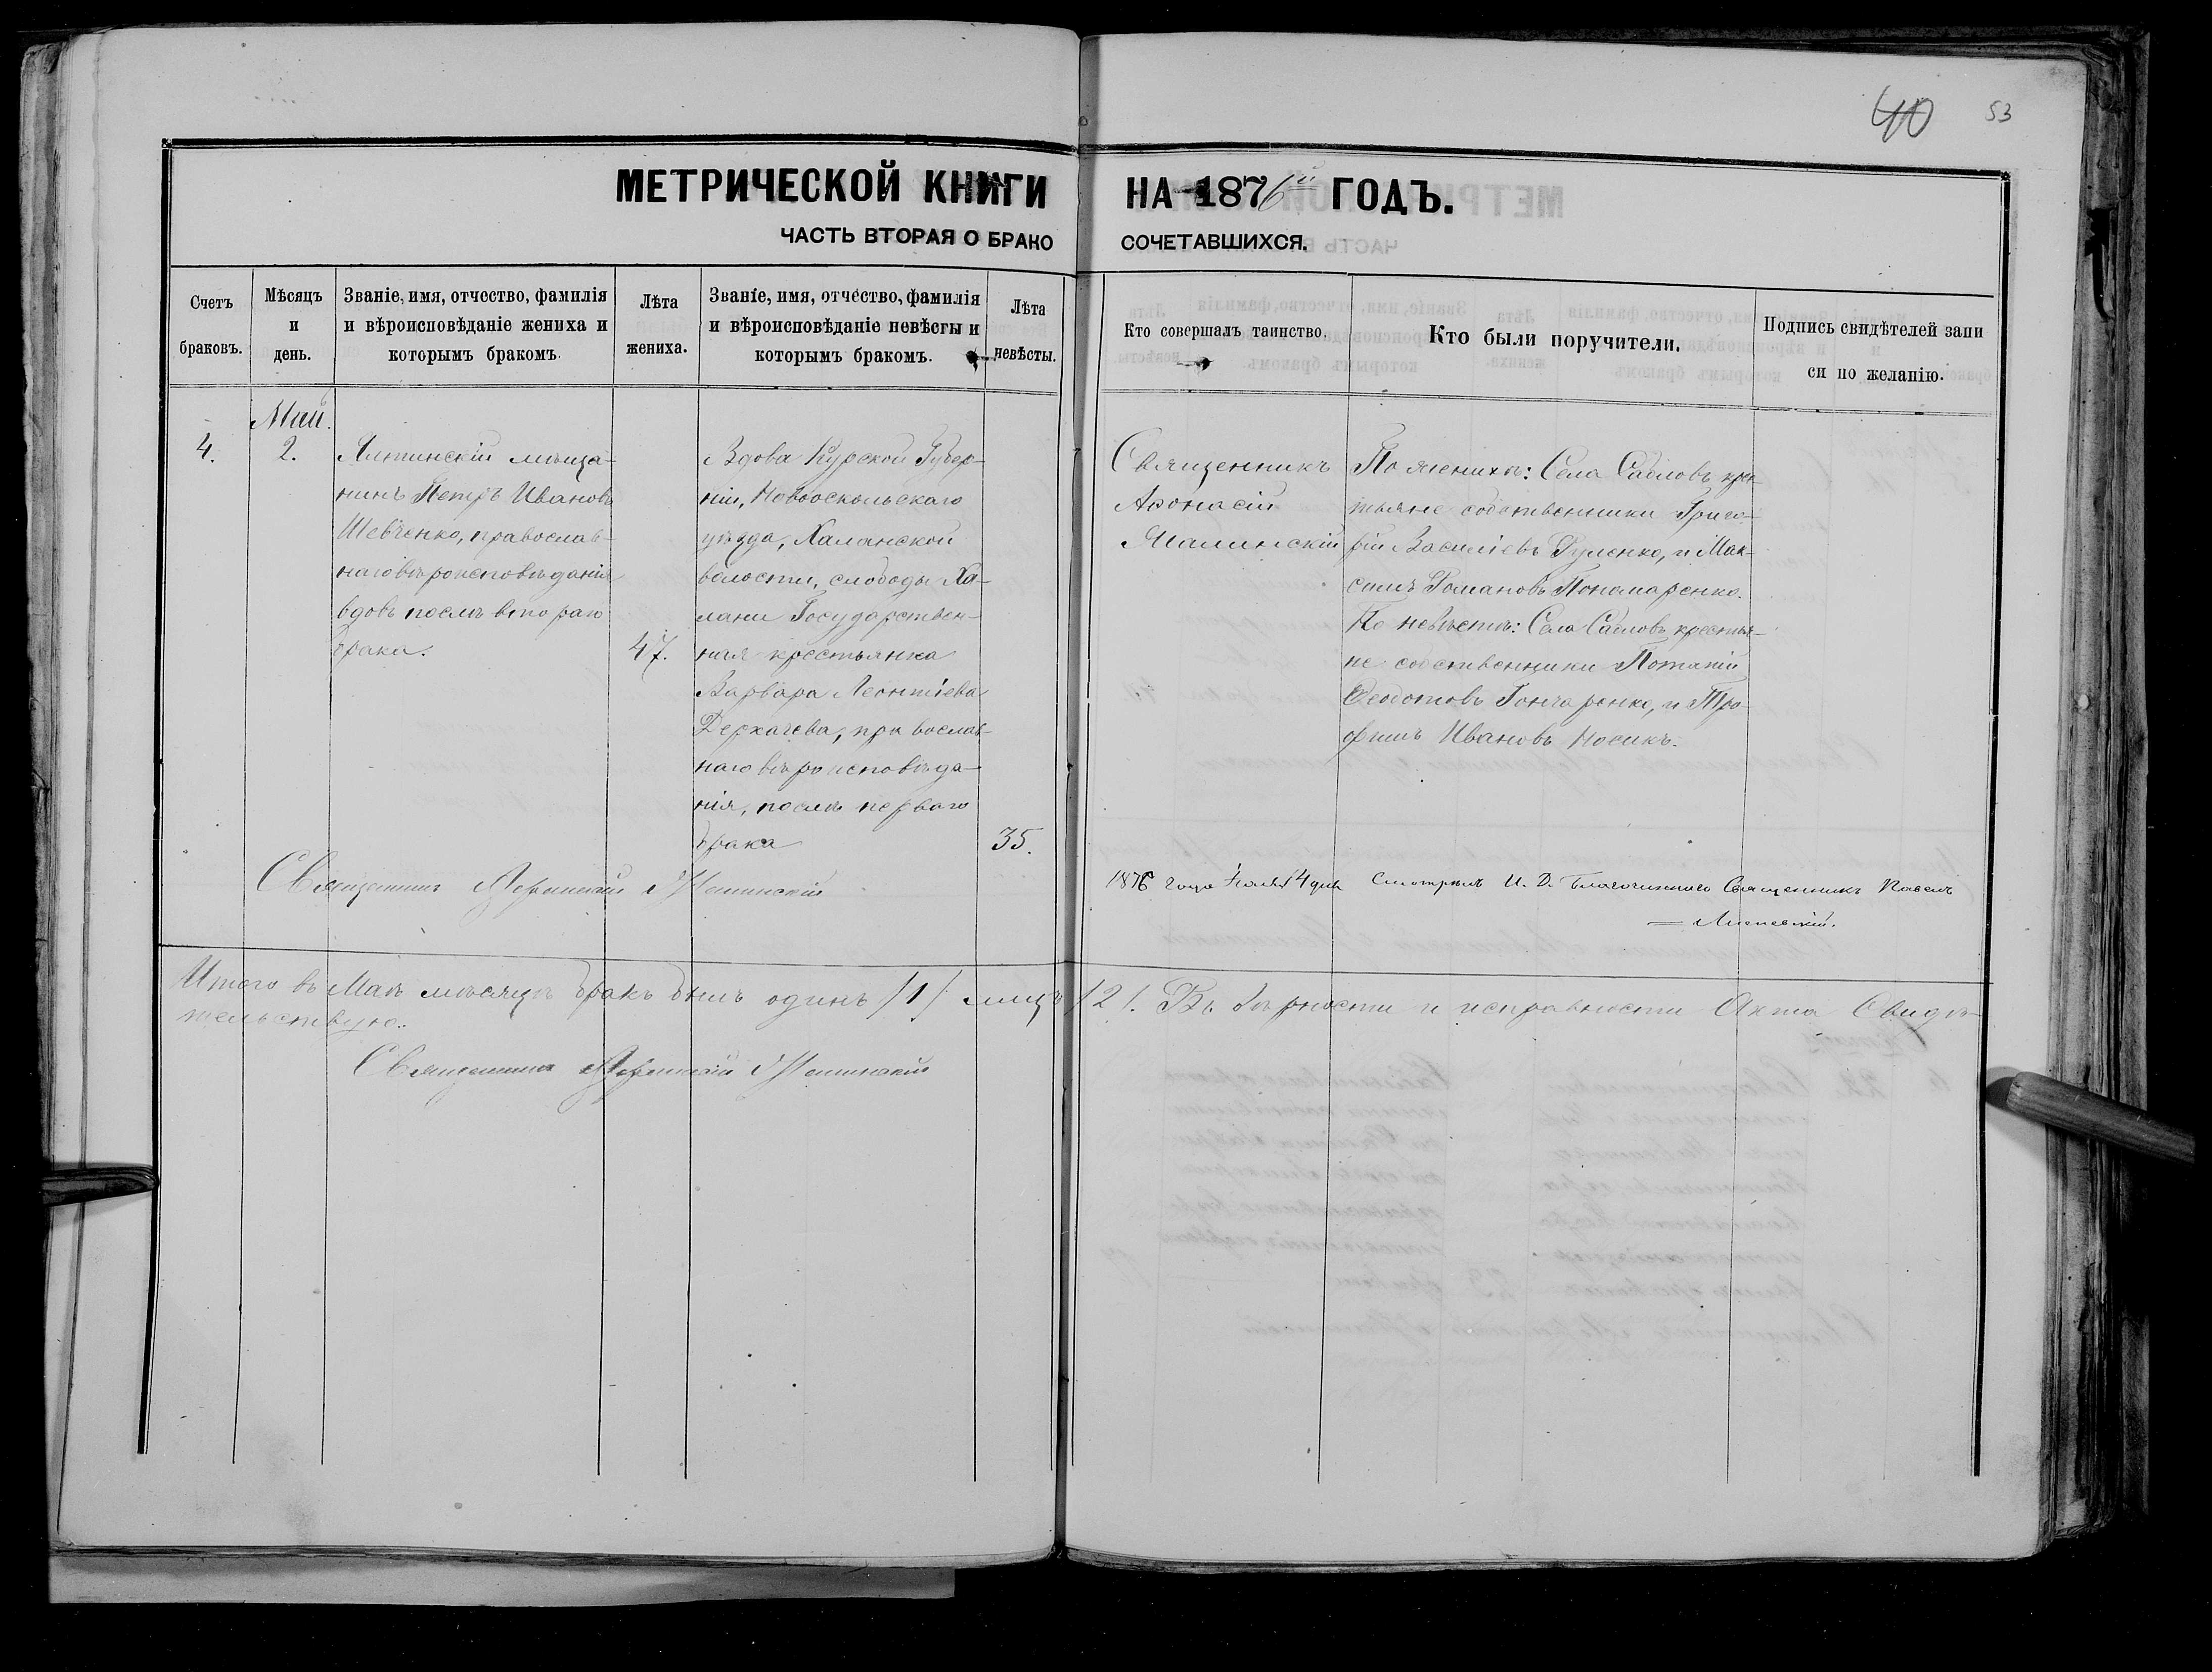 40 53
МЕТРИЧЕСКОЙ КНИГИ НА 1876й ГОДЪ.
ЧАСТЬ ВТОРАЯ О БРАКО СОЧЕТАВШИХСЯ.
Счетъ
браковъ.
Мѣсяцъ
и
день.
Званіе, имя, отчество, фамилія
и вѣроисповѣданіе жениха и
которымъ бракомъ.
Лѣта
жениха.
Званіе, имя, отчество, фамилія
и вѣроисповѣданіе невѣсты и
которымъ бракомъ.
Лѣта
невѣсты.
Кто совершалъ таинство.
Кто были поручители.
Подпись свидѣтелей запи
си по желанію.
Май.
4.
2.
Ялтинскій мѣща-
нинъ Петръ Ивановъ
Шевченко, православ-
наго вѣроисповѣданія
вдовъ послѣ втораго
брака.
47.
Вдова Курской Губер-
ніи, Новооскольскаго
уѣзда, Халанской
волости, слободы Ха-
лани Государствен-
ная крестьянка
Варвара Леонтіева
Дерхачева, православ-
наго вѣроисповѣда-
нія, послѣ перваго
брака
35.
Священникъ
Афонасій
По женихѣ: Села Сабловъ крес
тьяне собственники Григо-
рій Василіевъ Гуленко, и Мак-
симъ Романовъ Пономаренко.
По невѣстѣ: Села Сабловъ крестья-
не собственники Потапій
Ѳеодотовъ Гончаренко, и Тро
фимъ Ивановъ Носикъ.
Священникъ
1876 года 4 дня Смотрѣлъ И. Д. Благочиннаго Священникъ Павелъ
Итого въ Маѣ мѣсяцѣ бракъ былъ одинъ /1/ лицъ /2/. Въ вѣрности и исправности Акта Свидѣ-
тельствую.
Священникъ